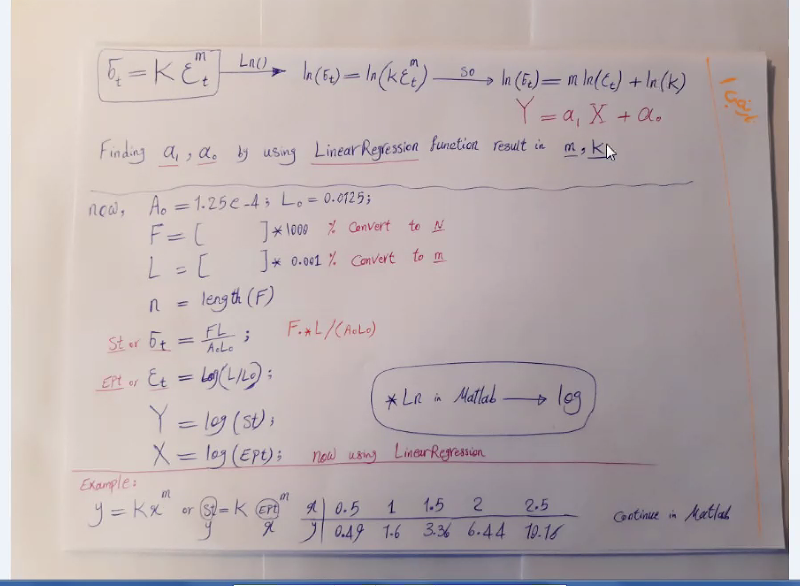 σt = K Ɛt^m Ln() → ln(σt) = ln(kƐt^m) so → ln(σt) = m ln(Ɛt) + ln(k)
Y = a₁ X + a₀
Finding a₁, a₀ by using LinearRegression function result in m, k
now, A₀ = 1.25e-4; L₀ = 0.0125;
F = [ ]*1000 % Convert to N
L = [ ]* 0.001 % Convert to m
n = length(F)
St or σt = FL/A₀L₀ ; F.*L/(A₀L₀)
EPt or Ɛt = log(L/L₀);
*Ln in Matlab → log
Y = log(St);
X = log(EPt); now using LinearRegression
Example:
y = Kx^m or St = K EPt^m x | 0.5 1 1.5 2 2.5
y x y | 0.49 1.6 3.36 6.44 10.16
Continue in Matlab